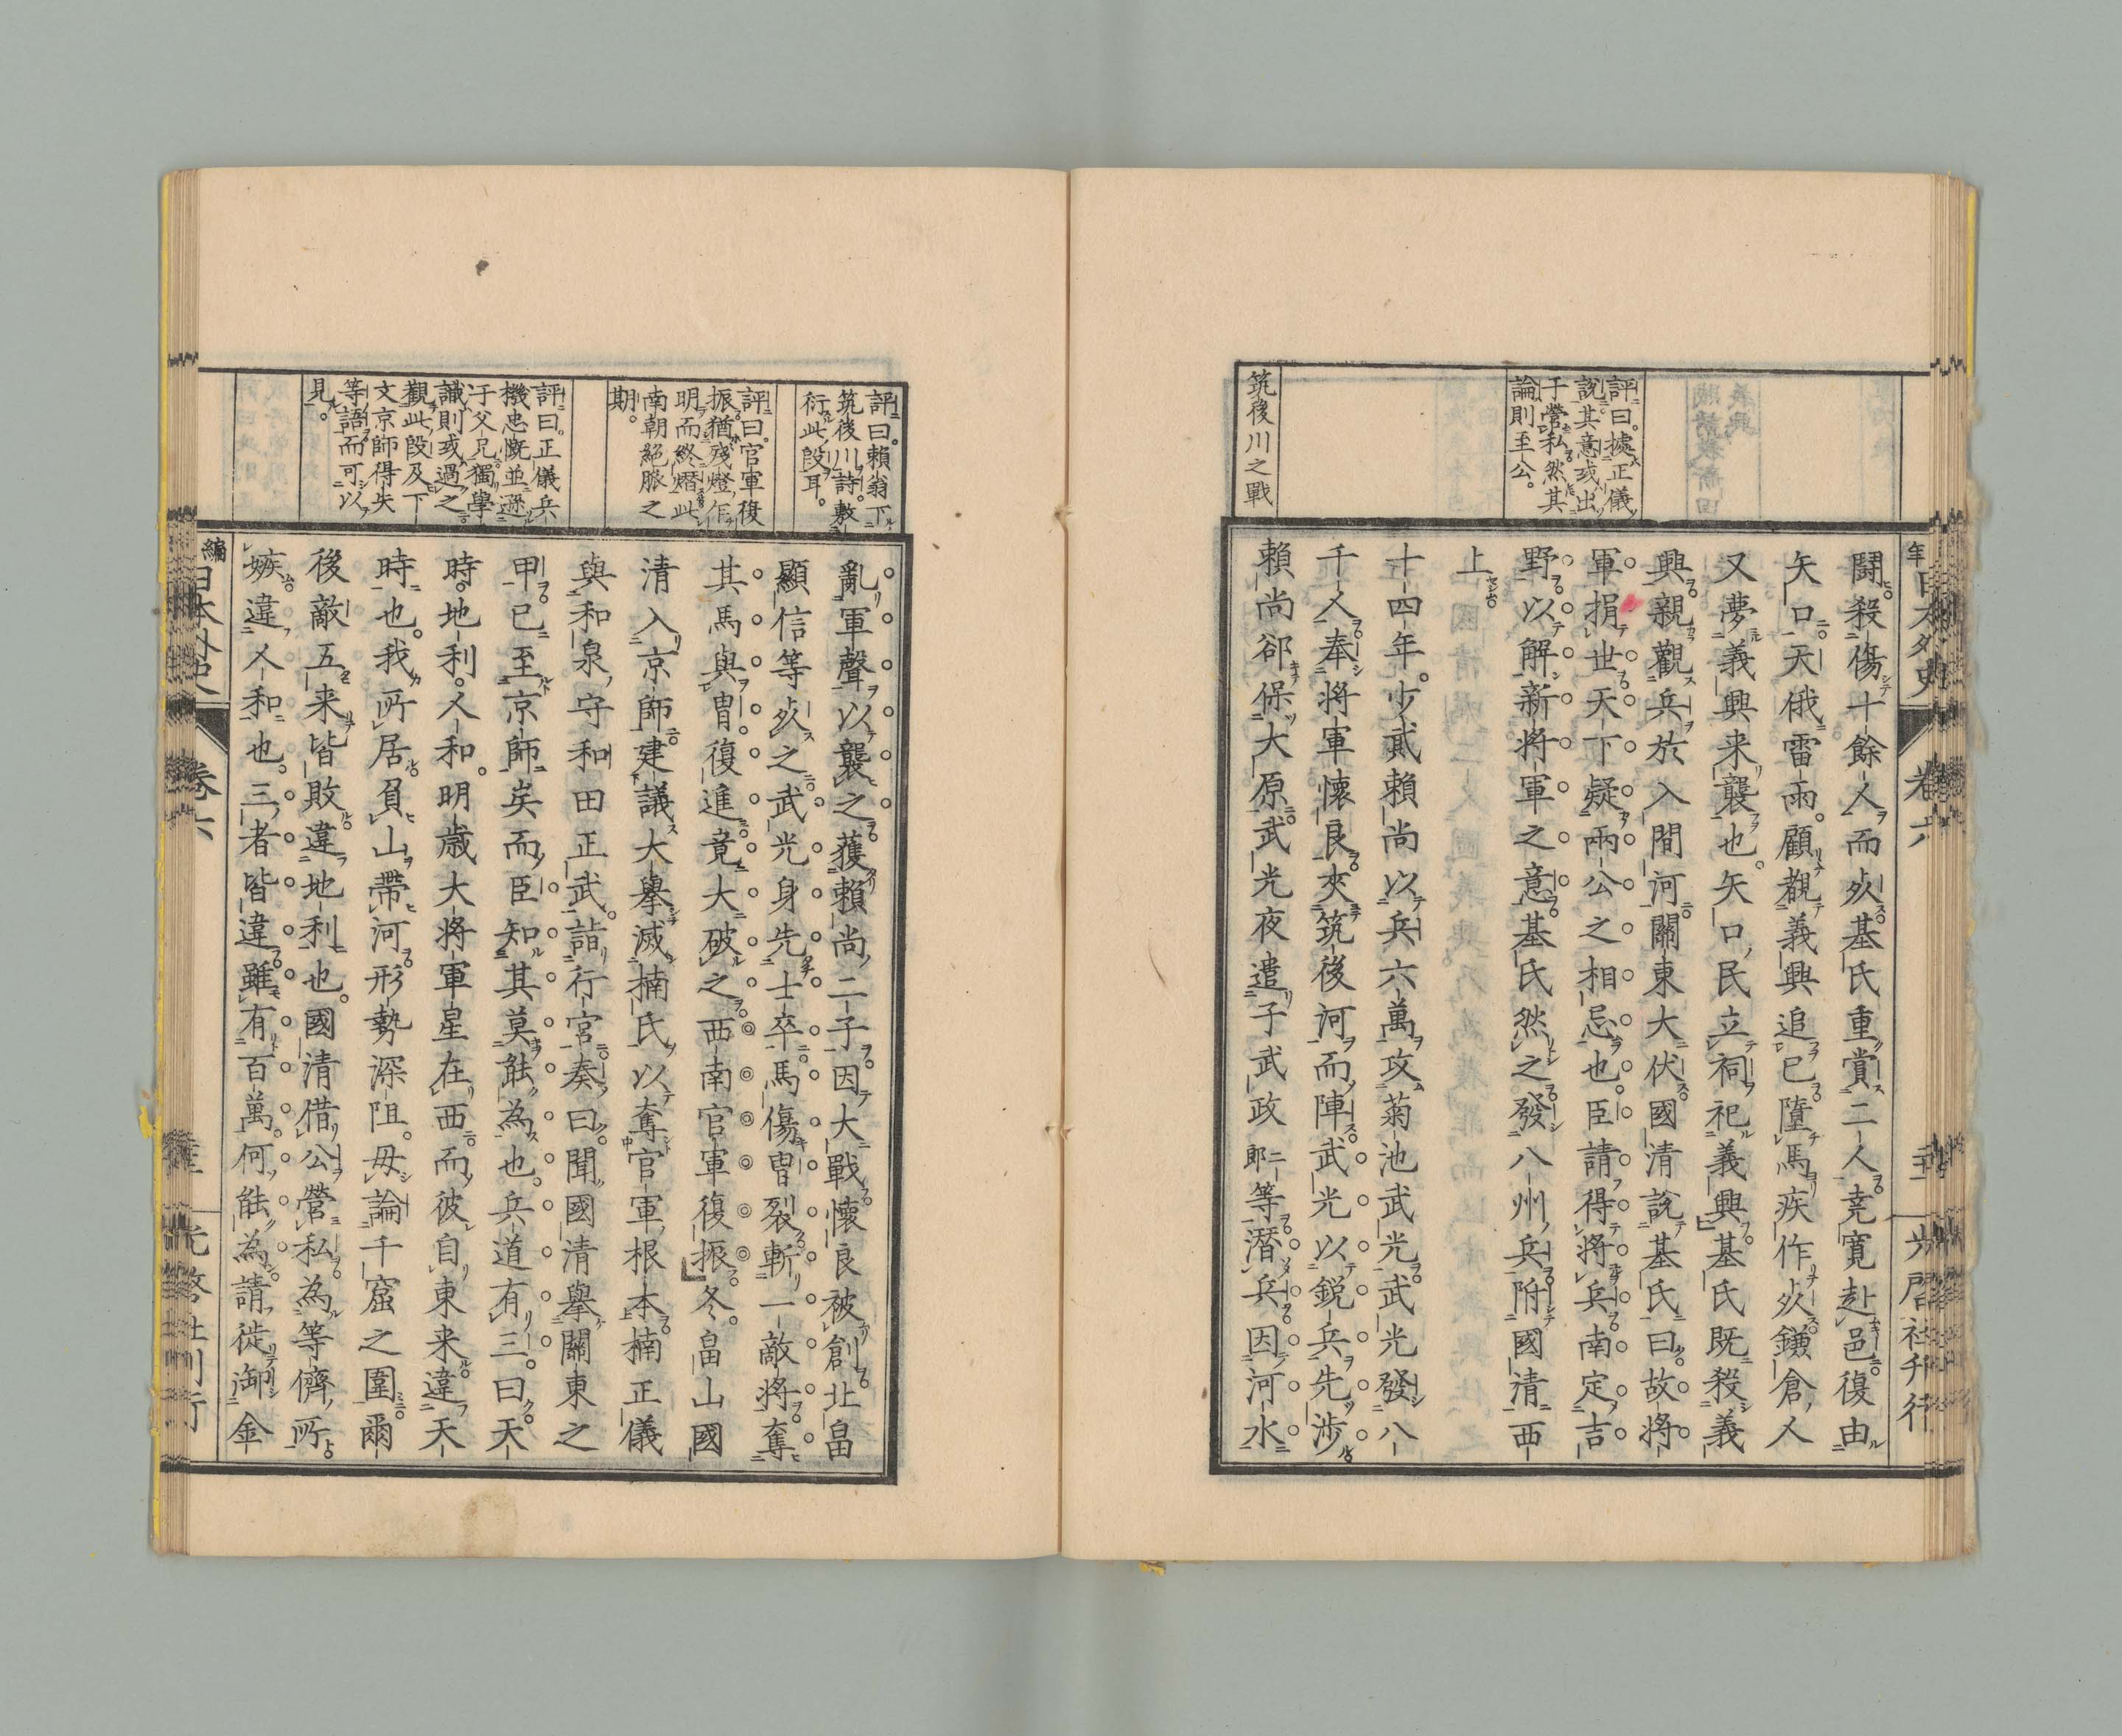 評曰。據正儀
說其意或出
于營私然其
論則至公。
筑後川之戰
鬪殺傷十餘人而死基氏重賞二人尭寛赴邑復由
矢口天俄雷雨。顧觀義興追已墮馬疾作死鎌倉人
又夢義興来襲也。矢口民立祠祀義興基氏既殺義
興親觀兵於入間河關東大伏國清說基氏曰故將
軍捐世天下疑兩公之相忌也。臣請得將兵南定吉
野以解新將軍之意基氏然之發八州兵附國清西
上
十四年。少貳賴尚以兵六萬攻菊池武光武光發八
千人奉將軍懷良夾筑後河而陣武光以銳兵先涉
賴尚郤保大原武光夜遣子武政二郎等潛兵因河水
評曰。賴翁下
筑後川詩。敷
衍此段耳。
評曰。官軍復
振猶殘燈乍
明而終熸此
南朝絕脈之
期。
評曰。正儀兵
機忠慨並遜
于父兄獨學
識則或過之
觀此段及下
文京師得失
等語而可以
見。
亂軍聲以襲之獲賴尚二子因大戰懷良被創北畠
顯信等死之武光身先士卒馬傷胄裂斬一敵將奪
其馬與胄復進竟大破之西南官軍復振冬。畠山國
清入京師建議大擧滅楠氏以奪官軍根本楠正儀
與和泉守和田正武詣行宮奏曰聞國清擧關東之
甲已至京師矣而臣知其莫能為也。兵道有三。曰天
時。地利。人和。明歳大將軍星在西而彼自東来違天
時也。我所居負山帶河形勢深阻。毋論千窟之圍爾
後敵五来皆敗違地利也。國清借公營私為等儕所
嫉違人和也。三者皆違雖有百萬何能為請徙御金
編
日本外史
卷六
年
日本外史
卷六